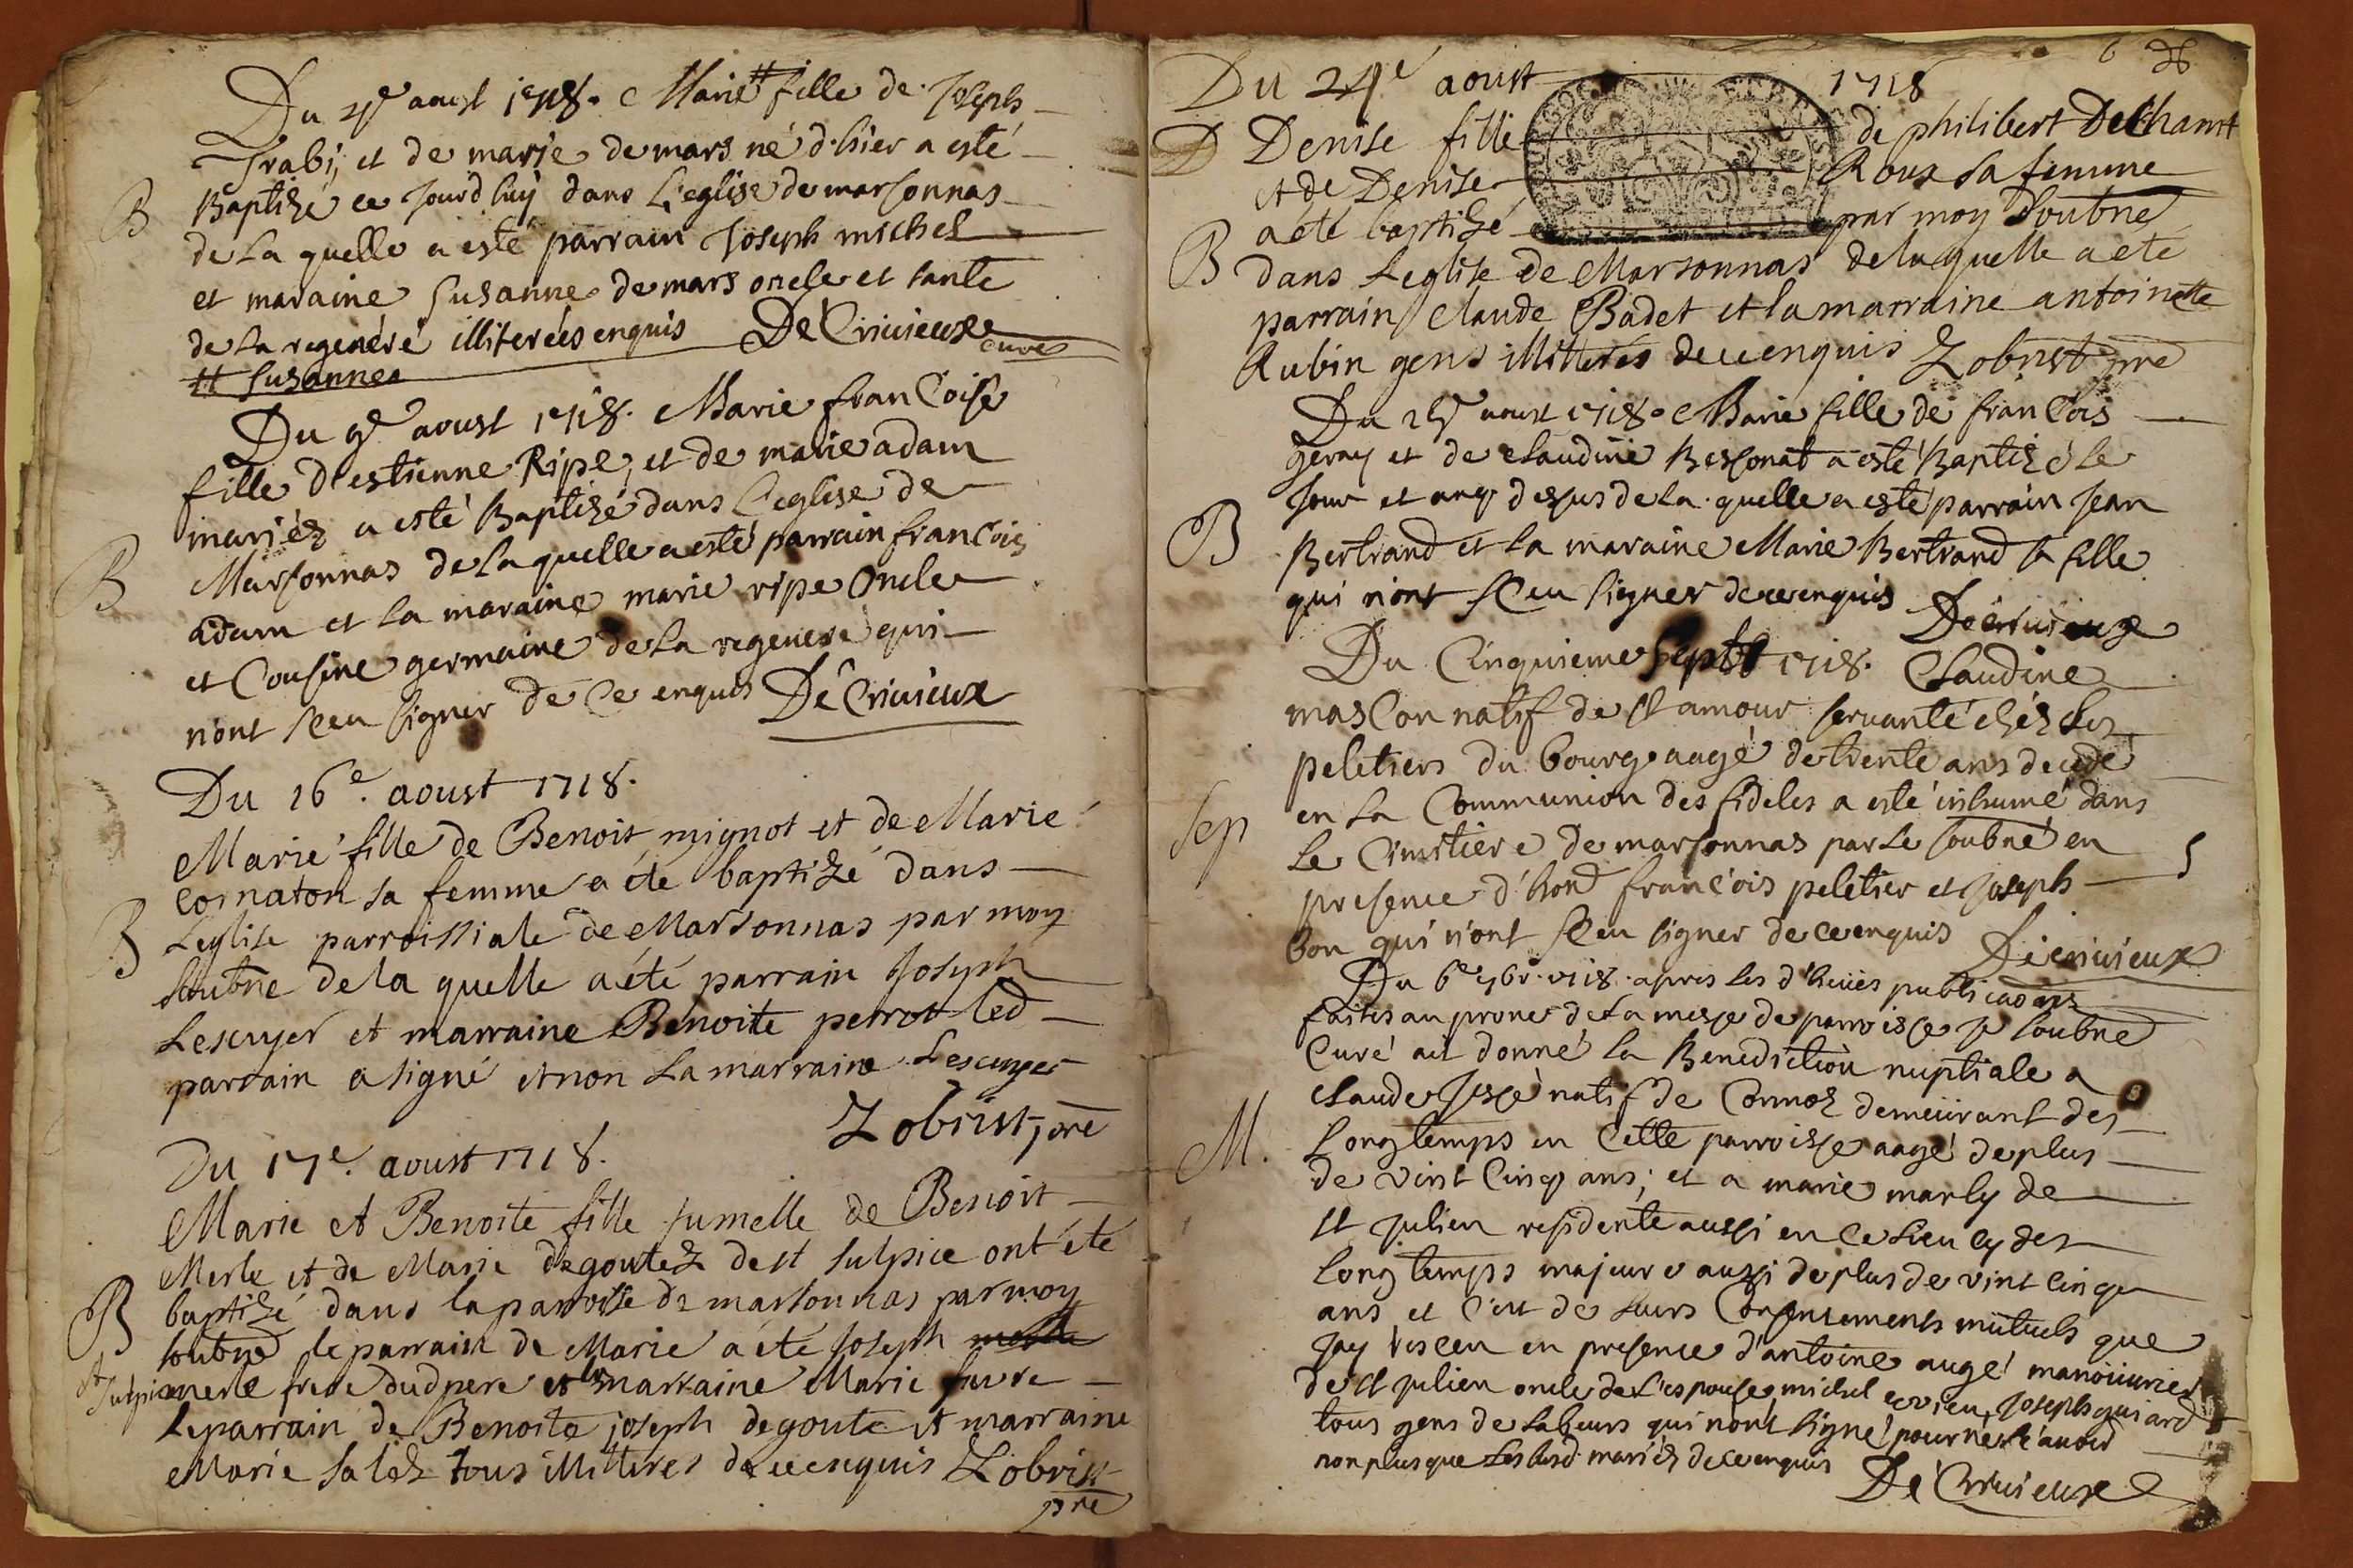 Du aoust 1718. Marie # fille de Joseph
Trabi, et de marie de mars né d'hier a esté
B Baptizé ce jourd'huy dans L'eglise de marsonnas
de la quelle a esté parrain Joseph michel
et maraine Susanne de mars oncle et tante
de la regeneré illiterées enquis De Criuieux curé
# Susanne
Du 9e aoust 1718. Marie francoise
fille d'estienne Ripe, et de marie adam
mariéz a esté Baptizé dans l'eglise de
B Marsonnas de la quelle a esté parrain francois
adam et la maraine marie ripe oncle
et Cousine germaine de la regeneré qui
n'ont sceu signer de ce enquis De Criuieux
Du 16e. aoust 1718.
Marie fille de Benoit mignot et de Marie
Cornaton sa femme a été baptizé dans
B Leglise parroissiale de Marsonnas par moy
soubné de la quelle a été parrain Joseph
Lescuyer et marraine Benoite perrot led
parrain a signé et non la marraine Lescuyer
Lobrist, pre
Du 17e. aoust 1718.
Marie et Benoite fille jumelle de Benoit
Merle et de Marie degoutez de st sulpice ont été
B baptizé dans la paroisse de marsonnas par moy
soubné le parrain de Marie a été Joseph merle
st Sulpice merle frere dud pere et la marraine Marie favre
le parrain de Benoite joseph degoute et marraine
Marie Salez tous illitteres de ce enquis Lobrist
pre
6
Du 24e aoust 1718
D Denise fille de philibert Dechamt
et de Denise Roux sa femme
a été baptizé par moy soubné
B dans Leglise de Marsonnas de laquelle a eté
parrain Claude Badet et la marraine antoinette
Rubin gens illitterés de ce enquis Lobrist pre
Du aoust 1718. Marie fille de francois
geray et de claudine Bessonat a esté Baptizé le
jour et an que dessus de la quelle a esté parrain Jean
B Bertrand et la maraine Marie Bertrand sa fille
qui n'ont sceu signer de ce enquis De Criuieux
Du Cinquieme Septbr 1718. Claudine
mascon natif de st amour servante chéz les
peletiers du bourg aagé de trente ans decedé
en la Communion des fideles a esté inhumé dans
Sep le Cimitiere de marsonnas par le soubné en
presence d'hond francois peletier et Joseph 5
bon qui n'ont sceu signer de ce enquis De Criuieux
Du 6e 7br. 1718. apres les d'heües publicaons
faites au prone de la messe de parroisse je soubné
Curé ait donné la Benediction nuptiale a
claude natif de Connoz demeurant des
M. Longtemps en Cette parroisse aagé de plus
de vint Cinq ans; et a marie marly de
st julien residente aussi en ce lieu cy des
Long temps majeure aussi de plus de vint cinq
ans et c'est de leurs Consentements mutuels que
jay resceu en presence d'antoine augé manoüurier
de st julien oncle de l'espouse, michel, Joseph guiard
tous gens de labeurs qui n'ont signé pour ne scauoir
non plus que Lesdsd mariéz de ce enquis
De Criuieux